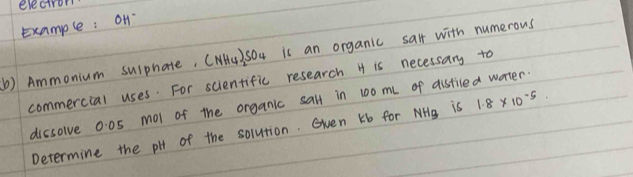 electron
Example : OH⁻
b) Ammonium sulphate, (NH4)2SO4 is an organic salt with numerous
commercial uses. For scientific research it is necessary to
dissolve 0.05 mol of the organic salt in 100 mL of distiled water.
Determine the pH of the solution. Given kb for NH3 is 1.8 × 10⁻⁵.